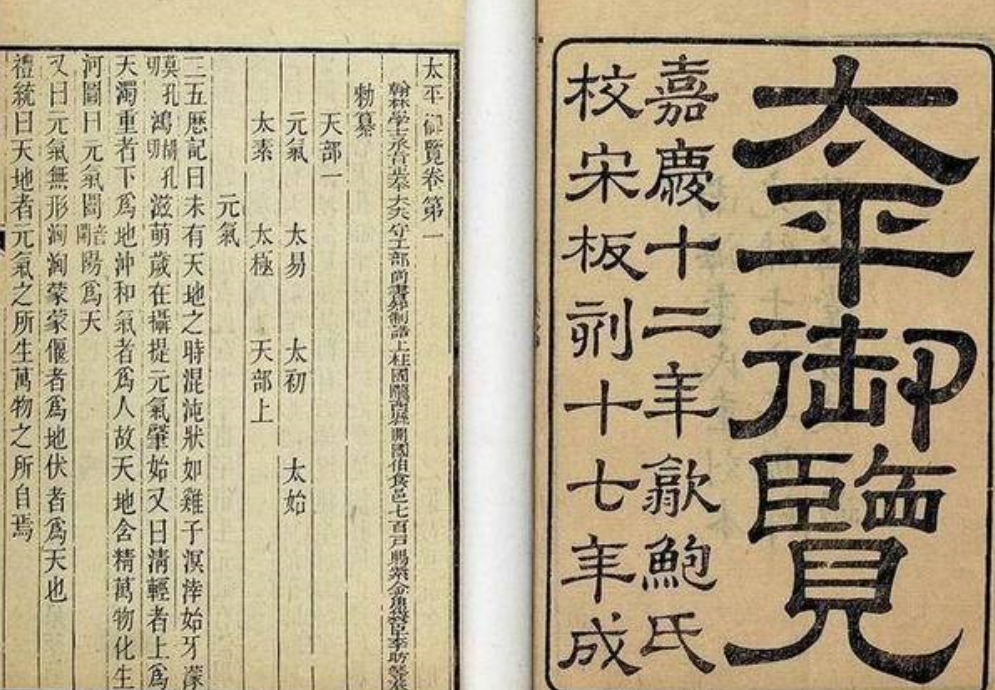 太平御覽
嘉慶十二年歙鮑氏
校宋板刻十七年成
太平御覽卷第一
翰林學士承旨正奉大夫守工部尚書知制誥上柱國隴西縣開國伯食邑七百戸賜紫金魚袋臣李昉等奉
勑纂
天部一
元氣 太易 太初 太始
太素 太極 天部上
元氣
三五厯記曰未有天地之時混沌狀如雞子溟涬始牙濛
莫孔切鴻胡孔切滋萌歲在攝提元氣肇始又曰清輕者上爲
天濁重者下爲地沖和氣者爲人故天地含精萬物化生
河圖曰元氣闓音開陽爲天
又曰元氣無形洶洶蒙蒙偃者爲地伏者爲天也
禮統曰天地者元氣之所生萬物之所自焉